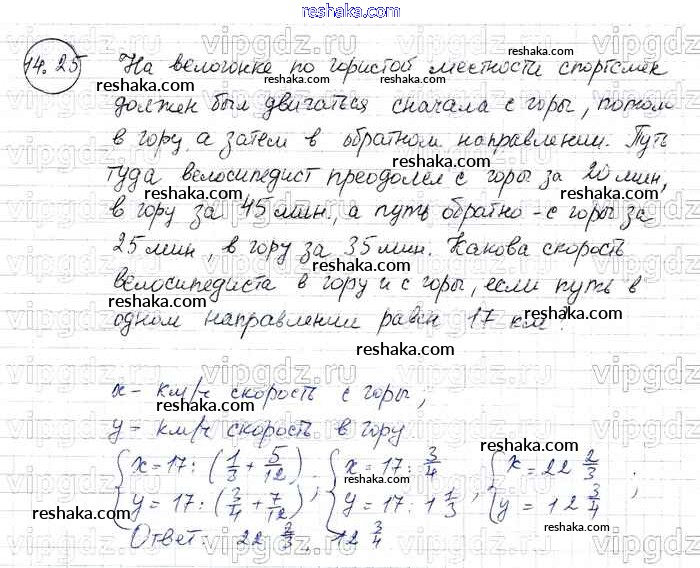 reshaka.ru
14.25 На велогонке по гористой местности спортсмен
должен был двигаться сначала с горы, потом
в гору, а затем в обратном направлении. Путь
туда велосипедист преодолел с горы за 20 мин,
в гору за 45 мин., а путь обратно - с горы за
25 мин, в гору за 35 мин. Какова скорость
велосипедиста в гору и с горы, если путь в
одном направлении равен 17 км?
x - км/ч скорость с горы,
y = км/ч скорость в гору
{ x = 17 : (1/3 + 5/12) ; { x = 17 : 3/4 ; { x = 22 2/3 ;
{ y = 17 : (3/4 + 7/12) ; { y = 17 : 1 1/3 ; { y = 12 3/4 ;
Ответ: 22 2/3, 12 3/4
reshaka.ru
vipgdz.ru